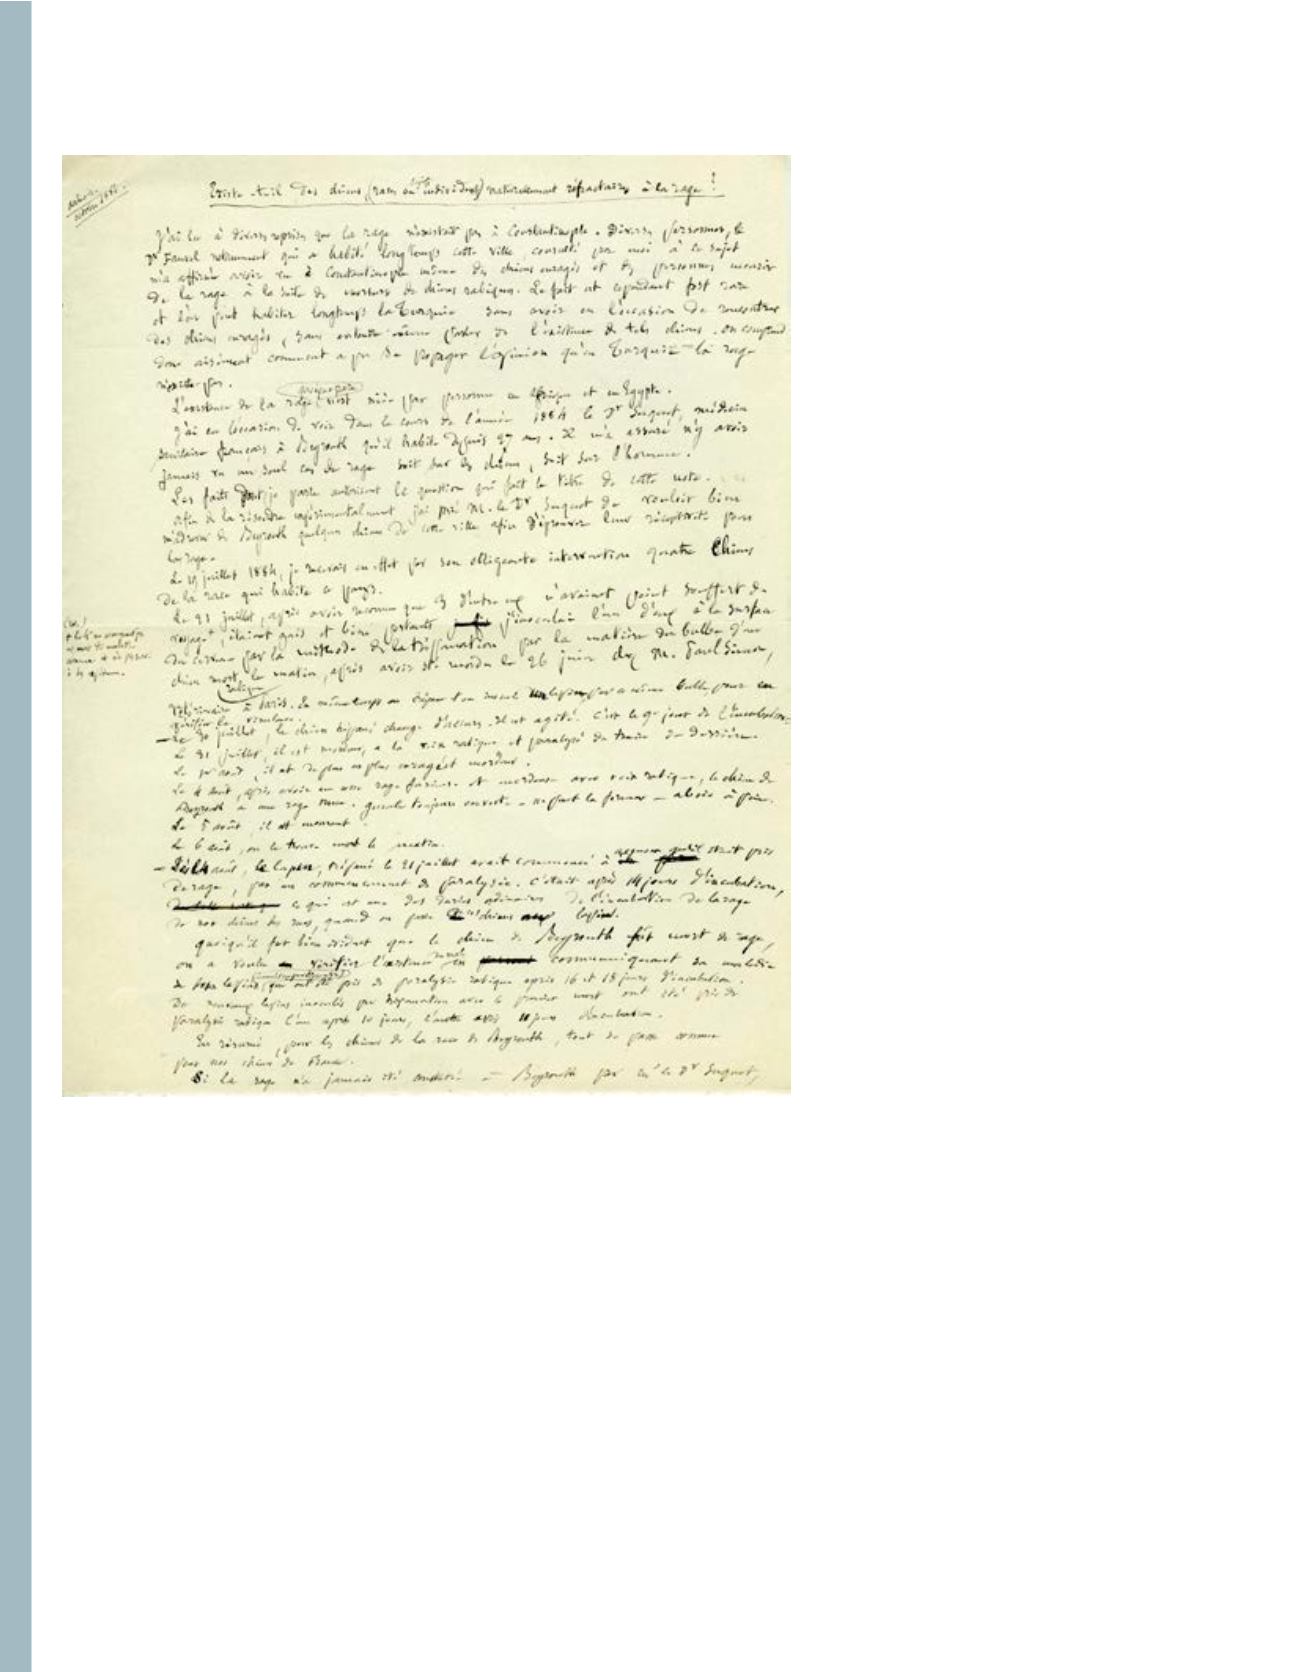 Existe-t-il des chiens (race ou individus) naturellement réfractaires à la rage?
J'ai lu à diverses reprises que la rage n'existait pas à Constantinople. Diverses personnes, le
Dr Fauvel notamment qui a habité longtemps cette ville, consulté par moi à ce sujet
m'a affirmé avoir vu à Constantinople même des chiens enragés et des personnes mourir
de la rage à la suite de morsures de chiens rabiques. Le fait est cependant fort rare
et l'on peut habiter longtemps la Turquie sans avoir eu l'occasion de rencontrer
des chiens enragés, sans entendre même parler de l'existence de tels chiens. On comprend
donc aisément comment a pu se propager l'opinion qu'en Turquie la rage
n'existe pas.
L'existence de la rage n'est niée par personne en Afrique et en Egypte.
J'ai eu l'occasion de voir dans le cours de l'année 1884 le Dr Suquet, médecin
sanitaire français à Beyrouth qu'il habite depuis 27 ans. Il m'a assuré n'y avoir
jamais vu un seul cas de rage soit sur les chiens, soit sur l'homme.
Les faits dont je parle autorisent la question qui fait le titre de cette note.
afin de la résoudre expérimentalement j'ai prié M. le Dr Suquet de vouloir bien
m'adresser de Beyrouth quelques chiens de cette ville afin d'éprouver leur réceptivité pour
la rage.
Le 19 juillet 1884, je recevais en effet par son obligeante intervention quatre chiens
de la race qui habite ce pays.
Le 21 juillet, après avoir reconnu que 3 d'entre eux n'avaient point souffert du
voyage, étaient gais et bien portants j'inoculai l'un d'eux à la surface
du cerveau par la méthode de la trépanation par la matière du bulbe d'un
chien mort, le matin, après avoir été mordu le 26 juin chez M. Paul Simon,
rabique
vétérinaire à Paris. En même temps on inocula un lapin par ce même bulbe pour en
vérifier la virulence.
Le 30 juillet, le chien trépané change d'allures. Il est agité. C'est le 9e jour de l'incubation.
Le 31 juillet, il est mordeur, a la voix rabique et paralysé du train de derrière.
Le 1er août, il est de plus en plus enragé et mordeur.
Le 4 août, après avoir eu une rage furieuse et mordeuse avec voix rabique, le chien de
Beyrouth a une rage mue. gueule toujours ouverte - ne peut la fermer - aboie à peine.
Le 5 août, il est mourant.
Le 6 août, on le trouve mort le matin.
Dès le 4 août, le lapin, trépané le 21 juillet avait commencé à être pris
de rage, par un commencement de paralysie. C'était après 14 jours d'incubation,
ce qui est une des durées ordinaires de l'incubation de la rage
de nos chiens des rues, quand on passe des chiens aux lapins.
Quoiqu'il fut bien évident que le chien de Beyrouth fût mort de rage,
on a voulu vérifier l'existence du mal en communiquant sa maladie
de deux lapins qui ont été pris de paralysie rabique après 16 et 18 jours d'incubation.
De nouveaux lapins inoculés par trépanation avec le premier mort ont été pris de
paralysie rabique l'un après 10 jours, l'autre après 11 jours d'incubation.
En résumé, pour les chiens de la race de Beyrouth, tout se passe comme
pour nos chiens de France.
Si la rage n'a jamais été constatée à Beyrouth par le Dr Suquet,